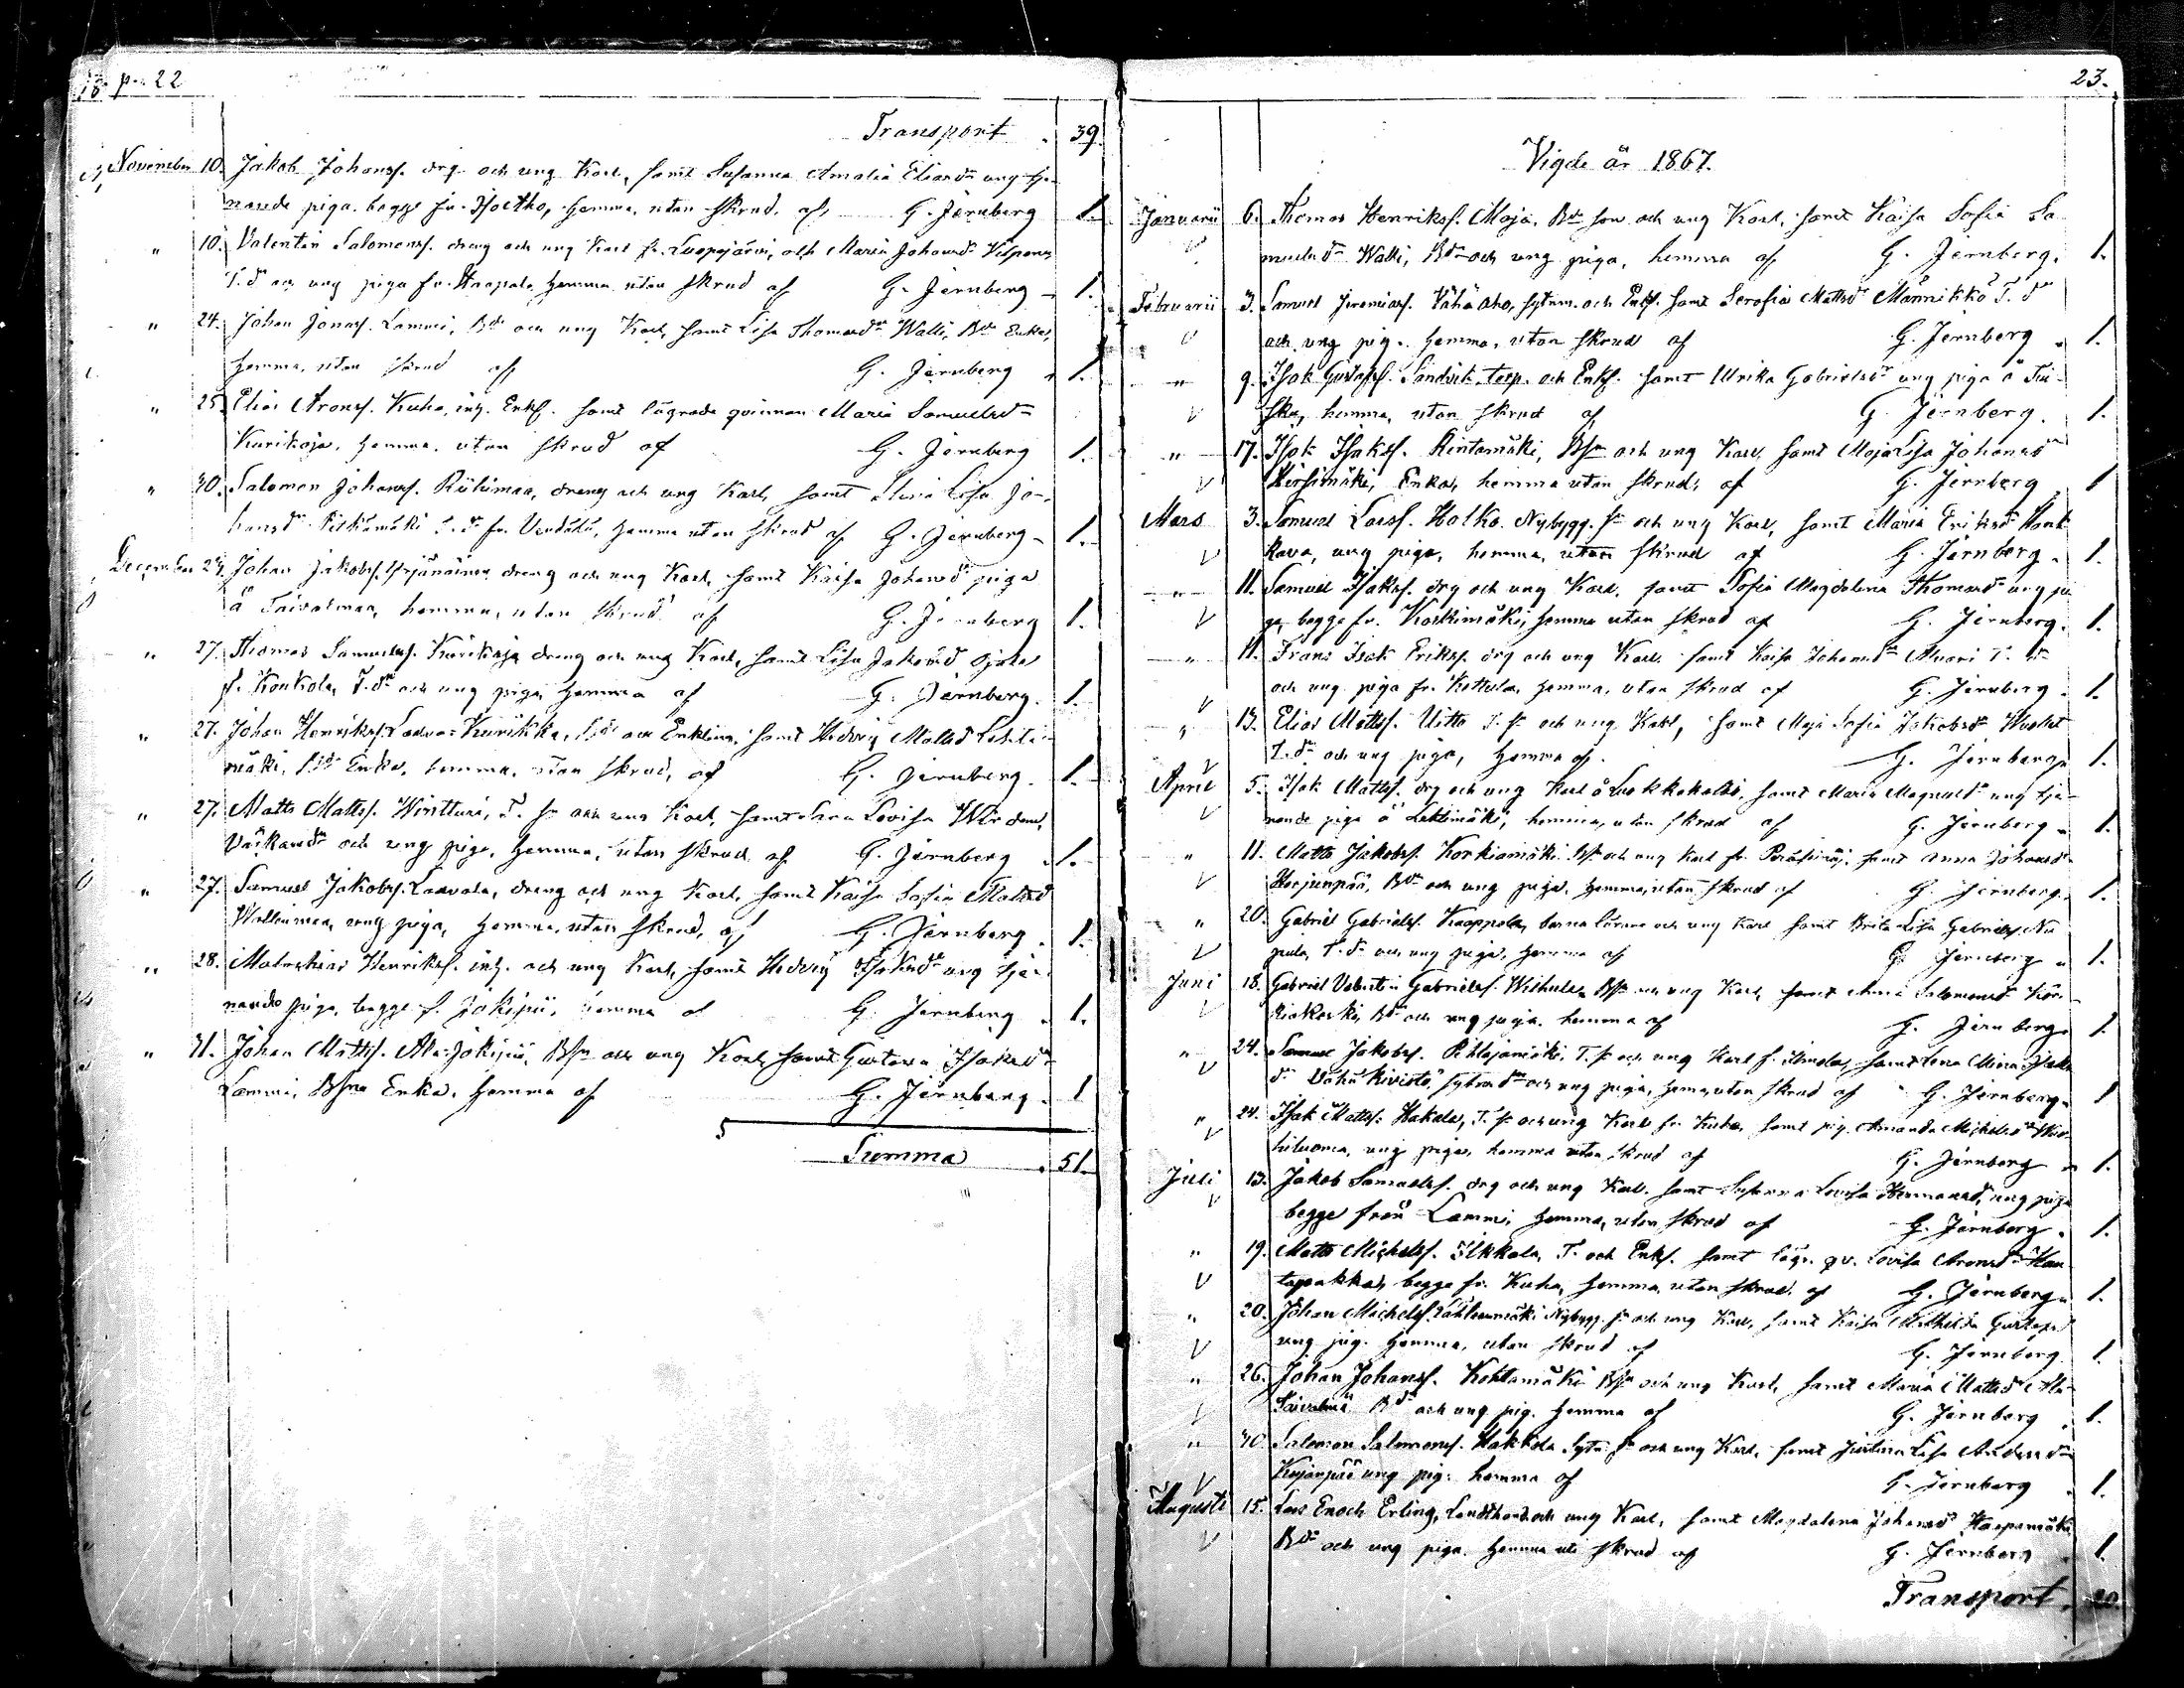 p. 22
Transport 39
November 10. Jakob Johanss. drg och ung Karl, samt Susanna Amalia Eliasdr ung tje-
nande piga, begge fr. Isoetho, hemma, utan skrud, af G. Jernberg 1.
" 10. Valentin Salomonss. dreng och ung Karl fr. Luopajärvi, och Maria Johansdr
T. dr och ung piga fr. Haapala hemma utan skrud af G. Jernberg 1.
" 24. Johan Jonass. Lammi, Bde och ung Karl, samt Lisa Thomasdr Walli, Bde Enka,
hemma, utan skrud af G. Jernberg 1.
" 25. Elias Aronss. Kuha, inh. Enkl. samt lägrade qvinnan Maria Samuelsdr
Kurikoja, hemma, utan skrud af G. Jernberg 1.
" 30. Salomon Johanss. Riihimaa, dreng och ung Karl, samt Lisa Jo-
hansdr Pitkämäki T. dr fr. hemma utan skrud af G. Jernberg 1.
December 24. Johan Jakobss. dreng och ung Karl, samt Kaisa Johansdr piga
å Taivalmaa, hemma, utan skrud af G. Jernberg 1.
" 27. Thomas Samuelss. Kurikoja dreng och ung Karl, samt Lisa Jakobsd Ojala
f. Koukola, T. dr och ung piga, hemma af G. Jernberg. 1.
" 27. Johan Henrikss. Kurikka, och Enkling, samt Hedvig Mattsd Lehti-
mäki, Enka, hemma, utan skrud, af G. Jernberg. 1.
" 27. Matts Mattss. Wintturi, T. sn och ung Karl, samt Lovisa
och ung piga, hemma, utan skrud af G. Jernberg 1.
" 27. Samuel Jakobss. Laavala, dreng och ung Karl, samt Kaisa Sofia Mattsd
ung piga, hemma, utan skrud, af G. Jernberg. 1.
" 28. Malachias Henrikss. inh. och ung Karl, samt Hedvig Isaksdr ung tje-
nande piga, begge f. Jokipii, hemma af G. Jernberg 1.
" 31. Johan Mattss. Ala-Jokipii, Bsn och ung Karl, samt Gustava Isaksdr
Lammi, Enka, hemma af G. Jernberg. 1
Summa 51.
23.
Vigde år 1867.
Januarii 6. Thomas Henrikss. Moja, Bde son och ung Karl, samt Kaisa Sofia Sa-
muelsdr Walli, Bdr och ung piga, hemma af G. Jernberg. 1.
Februarii 3. Samuel Jeremiass. Vähä aho, sytnm. och Enkl. samt Serafia Mattsdr Männikkö T. dr
och ung pig. hemma, utan skrud af G. Jernberg 1.
" 9. Isak Gustafss. Sandvik torp. och Enkl. samt Ulrika Gabrielsdr ung piga å
hemma, utan skrud af G. Jernberg. 1.
" 17. Isak Isakss. Rintamäki, Bsn och ung Karl, samt Maja Lisa Johansdr
Enka, hemma utan skrud, af G. Jernberg 1
Mars 3. Samuel Larss. Holko Nybygg. sn och ung Karl, samt Maria Eriksdr
ung piga, hemma, utan skrud af G. Jernberg. 1.
" 11. Samuel Isakss. drg och ung Karl, samt Sofia Magdalena Thomasdr ung pi-
ga, begge fr. Koskimäki, hemma utan skrud af G. Jernberg. 1.
" 11. Frans Isak Erikss. drg och ung Karl, samt Kaisa Johansdr T. dr
och ung piga fr. Kottula, hemma, utan skrud af G. Jernberg. 1.
" 13. Elias Mattss. Uitto T. sn och ung Karl, samt Maja Sofia Jakobsdr
T. dr och ung piga, hemma af. G. Jernberg 1.
April 5. Isak Mattss. drg och ung Karl å Luokkakallio, samt Maria Magnusdr ung tje-
nande piga å Lehtimäki, hemma, utan skrud af G. Jernberg 1.
" 11. Matts Jakobss. Korkiamäki Bsn och ung Karl fr. Peräseinäj. samt Anna Johansdr
Harjunpää, Bdr och ung piga, hemma, utan skrud af G. Jernberg. 1.
" 20. Gabriel Gabrielss. Kaappola, barnalärare och ung Karl samt Brita Lisa Gabrielsd
T. dr och ung piga, hemma af G. Jernberg 1.
Juni 18. Gabriel Valentin Gabrielss. Bsn och ung Karl, samt Anna Salomonsdr
Bdr och ung piga, hemma af G. Jernberg 1.
" 24. Samuel Jakobss. T. sn och ung Karl samt Lena Mina Isaks
dr Vähä Kivistö, och ung piga, hemma, utan skrud af G. Jernberg 1
" 24. Isak Mattss. Hakala, T. sn och ung Karl fr. Kuha, samt pig. Amanda Michelsdr
ung piga, hemma utan skrud af G. Jernberg 1.
Juli 13. Jakob Samuelss. drg och ung Karl, samt Susanna Lovisa Hermansd. ung piga
begge från Lammi, hemma, utan skrud af G. Jernberg. 1.
" 19. Matts Michelss. Ilkkala, T. och Enkl. samt lägr. qv. Lovisa Aronsdr
begge fr. Kuha, hemma, utan skrud af G. Jernberg 1.
" 20. Johan Michelss. Nybygg. sn och ung Karl, samt Kaisa Mathilda Gustafsd
ung pig. hemma, utan skrud af G. Jernberg 1.
" 26. Johan Johanss. Kohtamäki Bsn och ung Karl, samt Maria Mattsdr Ala-
Bdr och ung pig. hemma af G. Jernberg 1.
" 30. Salomon Salomonss. Hakkola Sytn. sn och ung Karl, samt Justina Lisa
ung pig. hemma af G. Jernberg 1.
Augusti 15. Lars Enoch Erling, Landthand. och ung Karl, samt Magdalena Johansdr Haapamäki
Bdr och ung piga, hemma uti skrud af G. Jernberg 1.
Transport. 20.